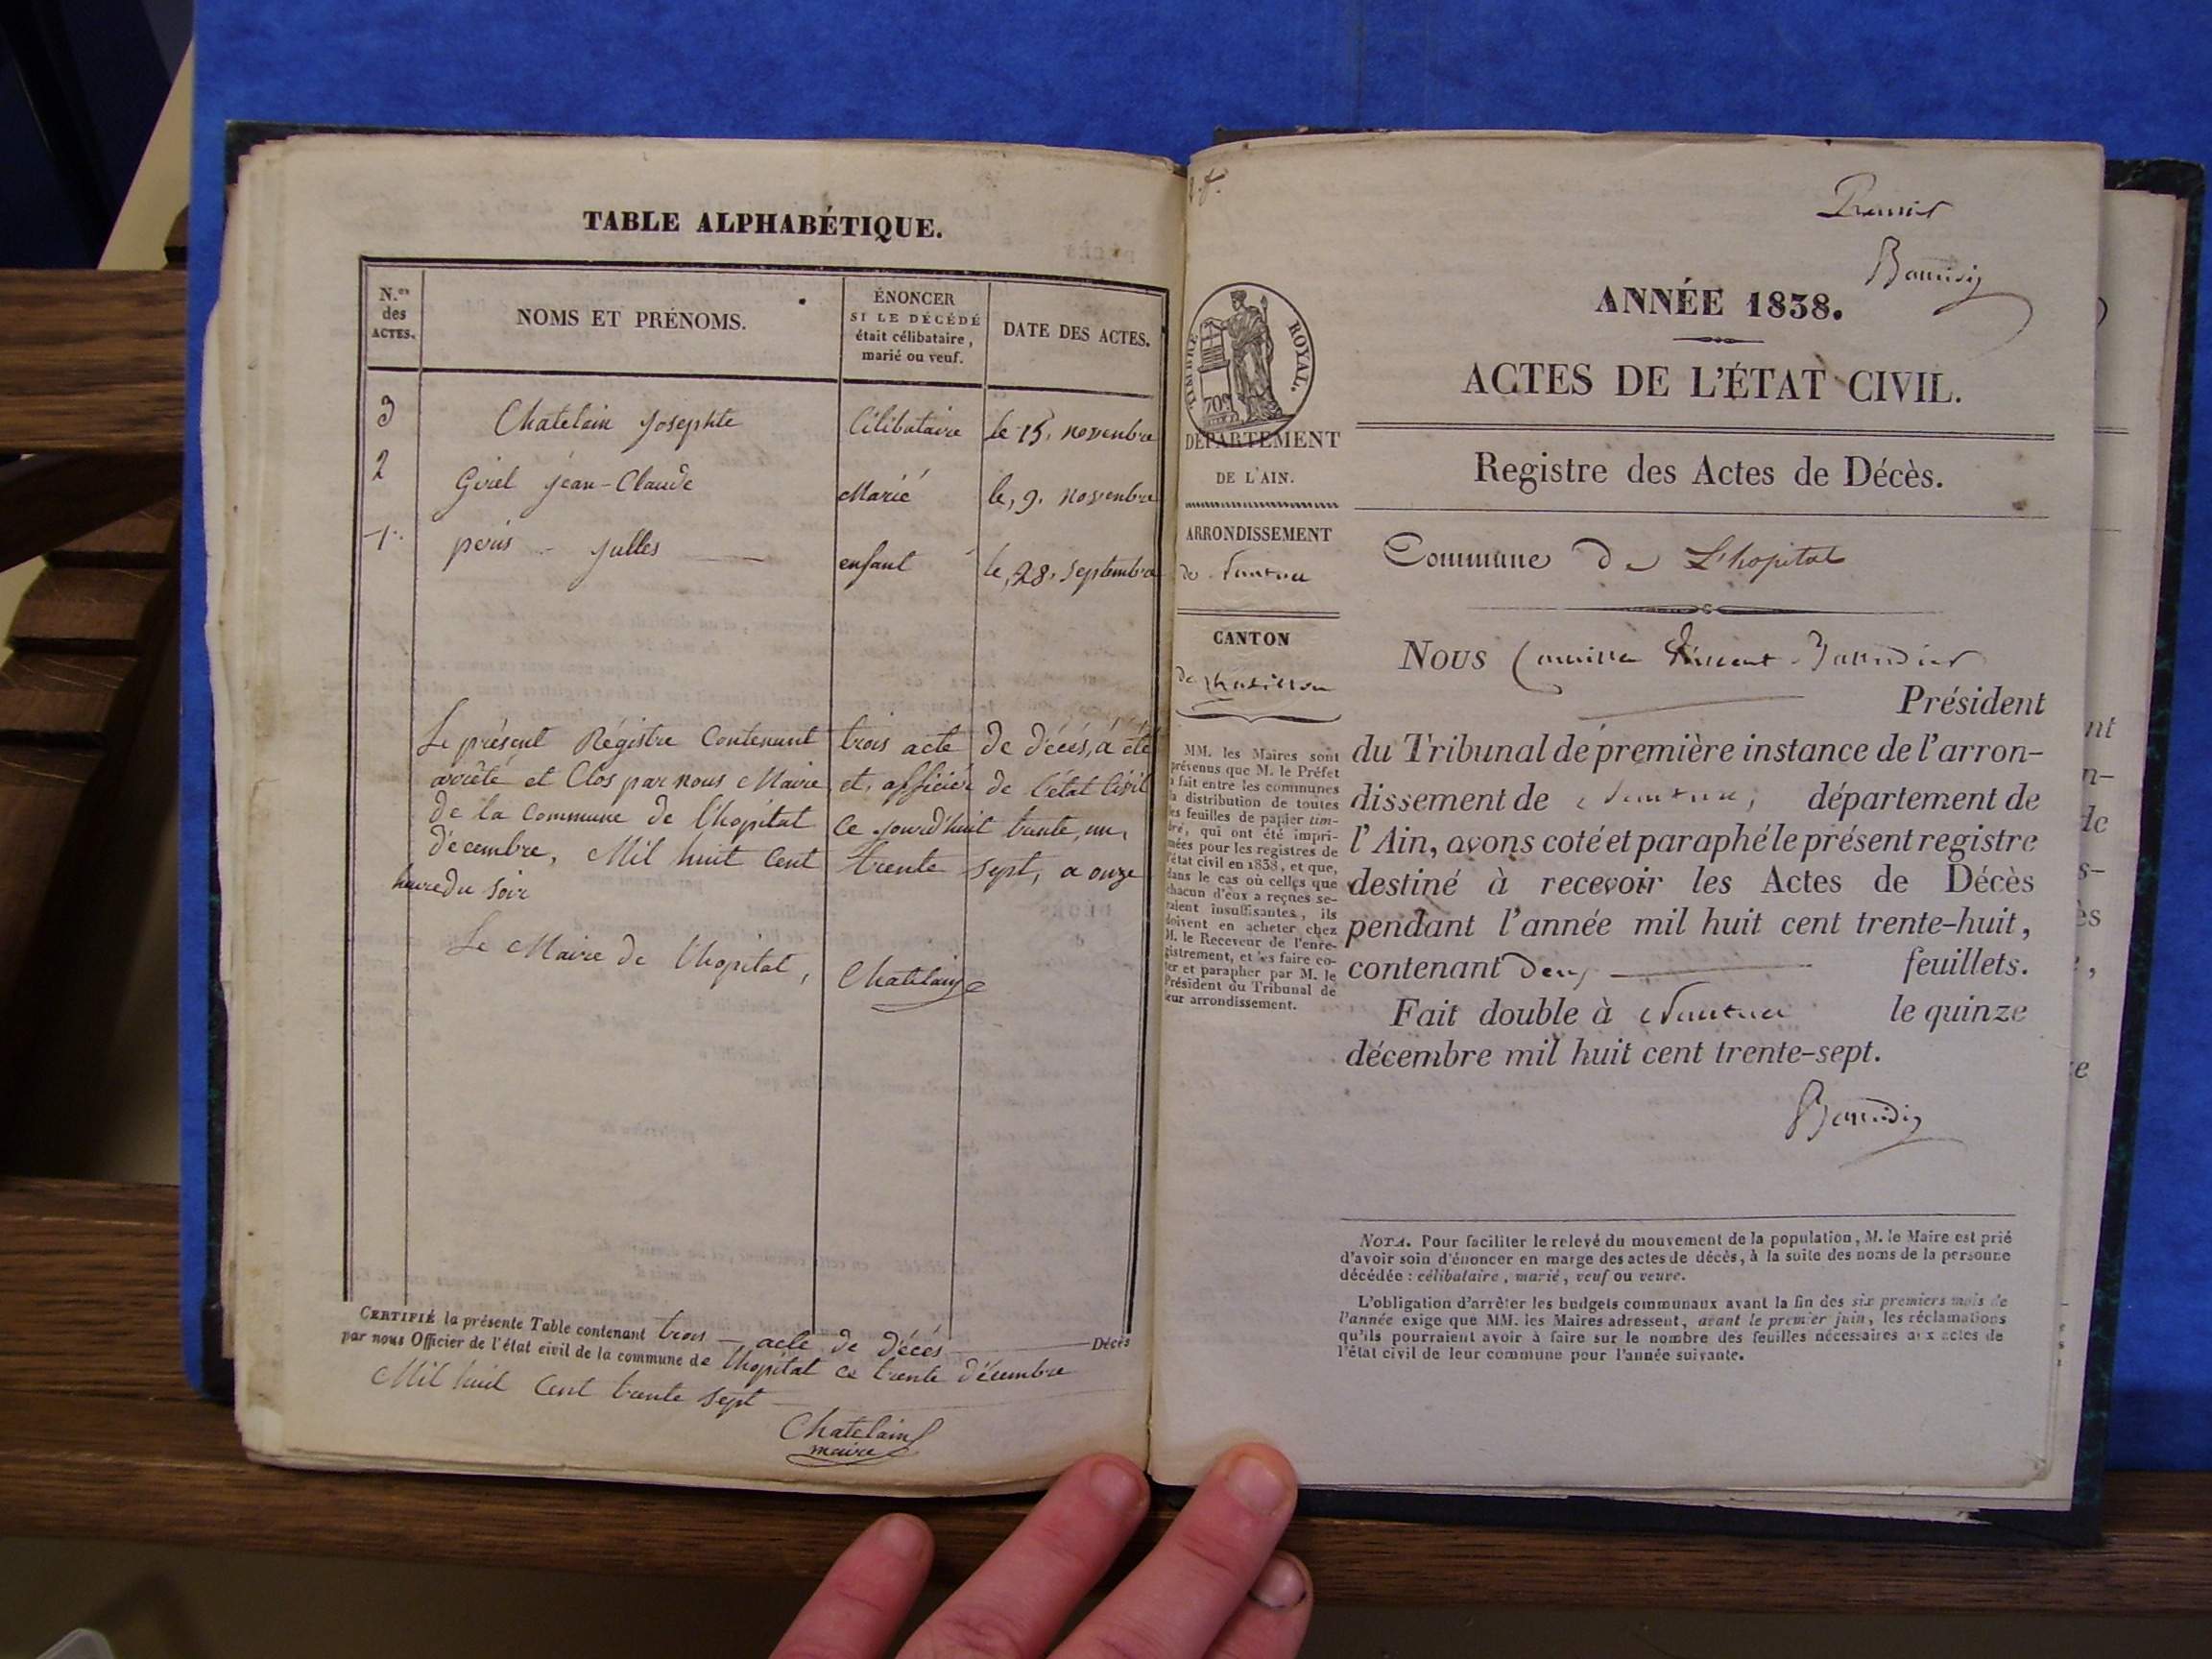 TABLE ALPHABÉTIQUE.
N.os des ACTES.
NOMS ET PRÉNOMS.
ÉNONCER
SI LE DÉCÉDÉ
était célibataire,
marié ou veuf.
DATE DES ACTES.
3 Chatelain Josephte Célibataire le 15, novembre
2 Girel jéan-Claude Marié le, 9. novembre
1 Julles enfant le, 28. Septembre
Le présent Régistre Contenant trois acte de décès, a été
arrêté et Clos par nous Maire et, officiér de l'état Civil
de la Commune de l'hôpital Ce jourd'huit trante, un,
décembre, Mil huit Cent trente sept, a onze
heure du soir
Le Maire de l'hopital, Chatelain
CERTIFIÉ la présente Table contenant trois acte de décès Décès
par nous Officier de l'état civil de la commune de l'hôpital ce trente décembre
Mil huit Cent trente sept
Chatelain
maire
Premier
ANNÉE 1838.
ACTES DE L'ÉTAT CIVIL.
Registre des Actes de Décès.
TIMBRE ROYAL.
70c
DÉPARTEMENT
DE L'AIN.
ARRONDISSEMENT
de Nantua
CANTON
de Chatillon
MM. les Maires sont
prévenus que M. le Préfet
a fait entre les communes
la distribution de toutes
les feuilles de papier tim-
bré, qui ont été impri-
mées pour les registres de
l'état civil en 1838, et que,
dans le cas où celles que
chacun d'eux a reçues se-
raient insuffisantes, ils
doivent en acheter chez
M. le Receveur de l'enre-
gistrement, et les faire co-
ter et parapher par M. le
Président du Tribunal de
leur arrondissement.
Commune de L'hopital
Nous Camille Vincent
Président
du Tribunal de première instance de l'arron-
dissement de Nantua, département de
l'Ain, avons coté et paraphé le présent registre
destiné à recevoir les Actes de Décès
pendant l'année mil huit cent trente-huit,
contenant deux feuillets.
Fait double à Nantua le quinze
décembre mil huit cent trente-sept.
NOTA. Pour faciliter le relevé du mouvement de la population, M. le Maire est prié
d'avoir soin d'énoncer en marge des actes de décès, à la suite des noms de la personne
décédée : célibataire, marié, veuf ou veuve.
L'obligation d'arrêter les budgets communaux avant la fin des six premiers mois de
l'année exige que MM. les Maires adressent, avant le premier juin, les réclamations
qu'ils pourraient avoir à faire sur le nombre des feuilles nécessaires aux actes de
l'état civil de leur commune pour l'année suivante.